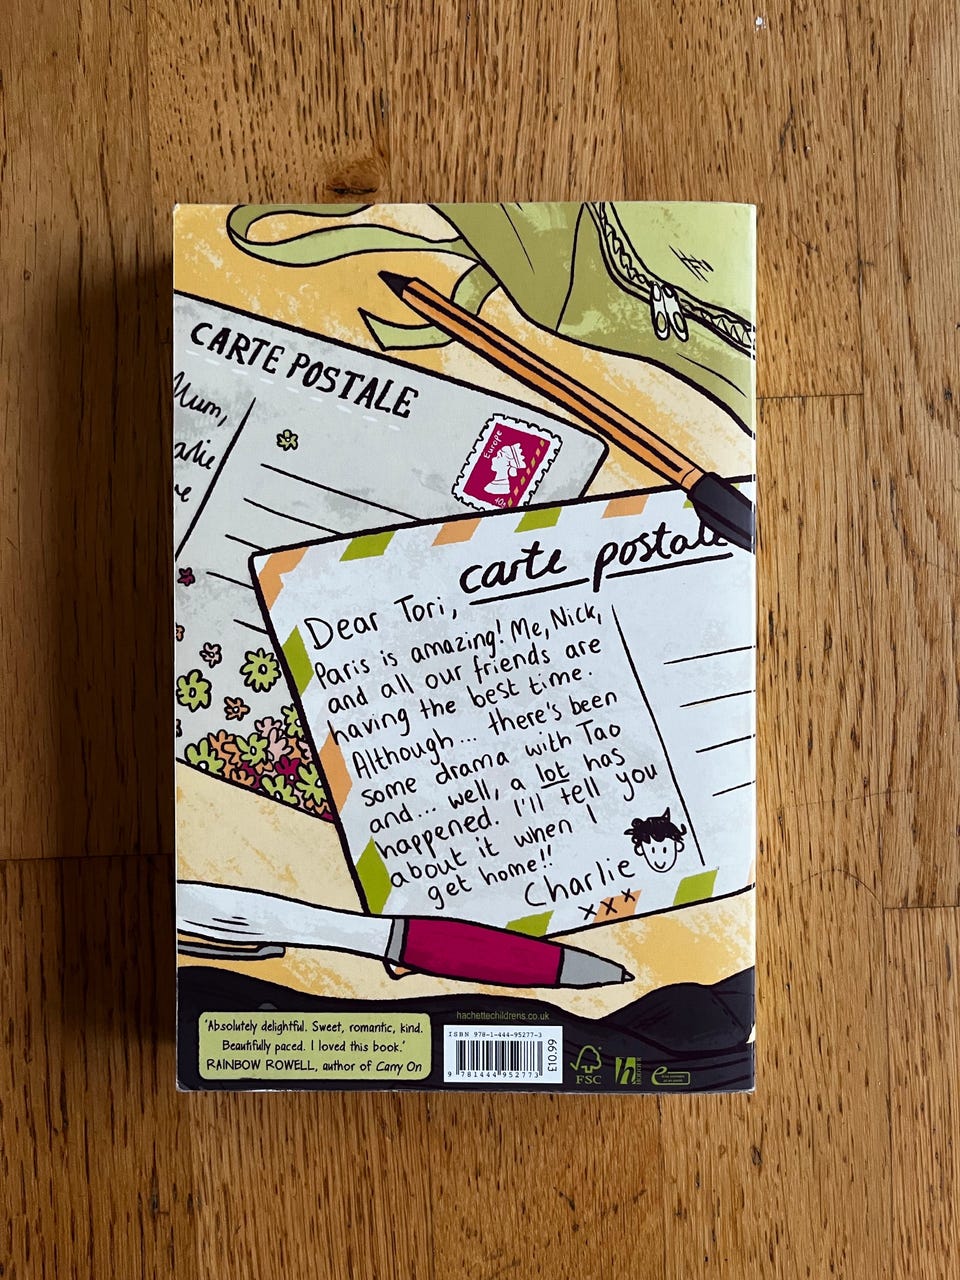 CARTE POSTALE
Mum,
Europe
carte postale
Dear Tori,
Paris is amazing! Me, Nick,
and all our friends are
having the best time.
Although... there's been
some drama with Tao
and... well, a lot has
happened. I'll tell you
about it when I
get home!!
Charlie
x x x
hachettechildrens.co.uk
'Absolutely delightful. Sweet, romantic, kind.
Beautifully paced. I loved this book.'
RAINBOW ROWELL, author of Carry On
ISBN 978-1-444-95277-3
9 781444 952773
£10.99
FSC
h
e